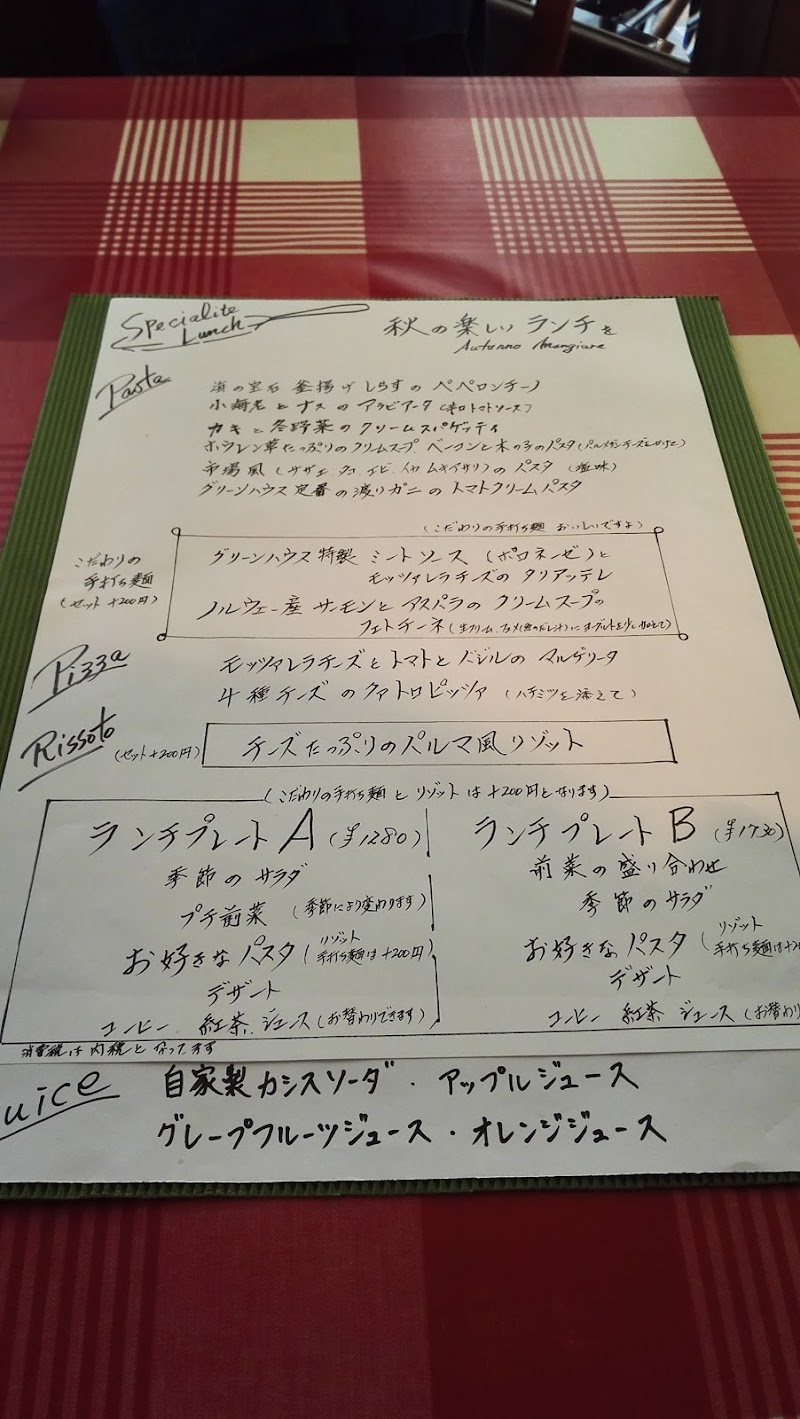 Specialite
Lunch
秋の楽しいランチを
Autunno Mangiare
Pasta
浜の宝石 釜揚げしらすのペペロンチーノ
小海老とナスのアラビアータ(辛口トマトソース)
カキと冬野菜のクリームスパゲッティ
ホウレン草たっぷりのクリームスープ、ベーコンと木の子のパスタ(パルメザンチーズをかけて)
市場風(サザエ、タコ、エビ、イカ、ムキアサリ)のパスタ(塩味)
グリーンハウス定番の渡りガニのトマトクリームパスタ
(こだわりの手打ち麺 おいしいですよ)
こだわりの
手打ち麺
(セット+200円)
グリーンハウス特製 ミートソース(ボロネーゼ)と
モッツァレラチーズのタリアッテレ
ノルウェー産サーモンとアスパラのクリームスープの
フェトチーネ
Pizza
モッツァレラチーズとトマトとバジルのマルゲリータ
4種チーズのクァトロピッツァ(ハチミツを添えて)
Rissoto
(セット+200円)
チーズたっぷりのパルマ風リゾット
(こだわりの手打ち麺とリゾットは+200円となります)
ランチプレートA(¥1280)
季節のサラダ
プチ前菜(季節により変わります)
お好きなパスタ(リゾット 手打ち麺は+200円)
デザート
コーヒー、紅茶、ジュース(お替わりできます)
ランチプレートB(¥1730)
前菜の盛り合わせ
季節のサラダ
お好きなパスタ(リゾット 手打ち麺は+20
デザート
コーヒー 紅茶 ジュース(お替わり
消費税は内税となってます
uice
自家製カシスソーダ・アップルジュース
グレープフルーツジュース・オレンジジュース